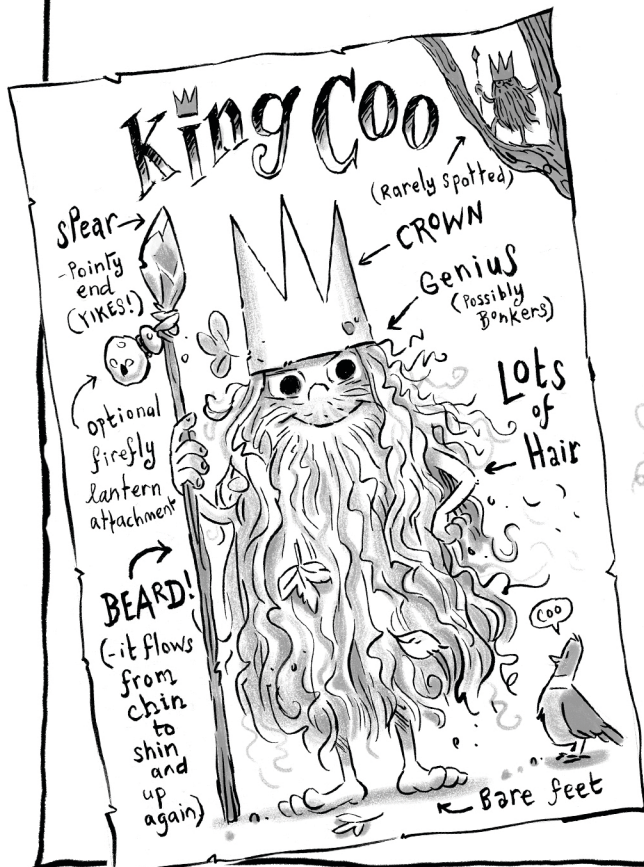 King Coo
(Rarely spotted)
spear
-Pointy
end
(YIKES!)
CROWN
Genius
(Possibly
Bonkers)
optional
firefly
lantern
attachment
Lots
of
Hair
BEARD!
(-it flows
from
chin
to
shin
and
up
again)
COO
Bare feet